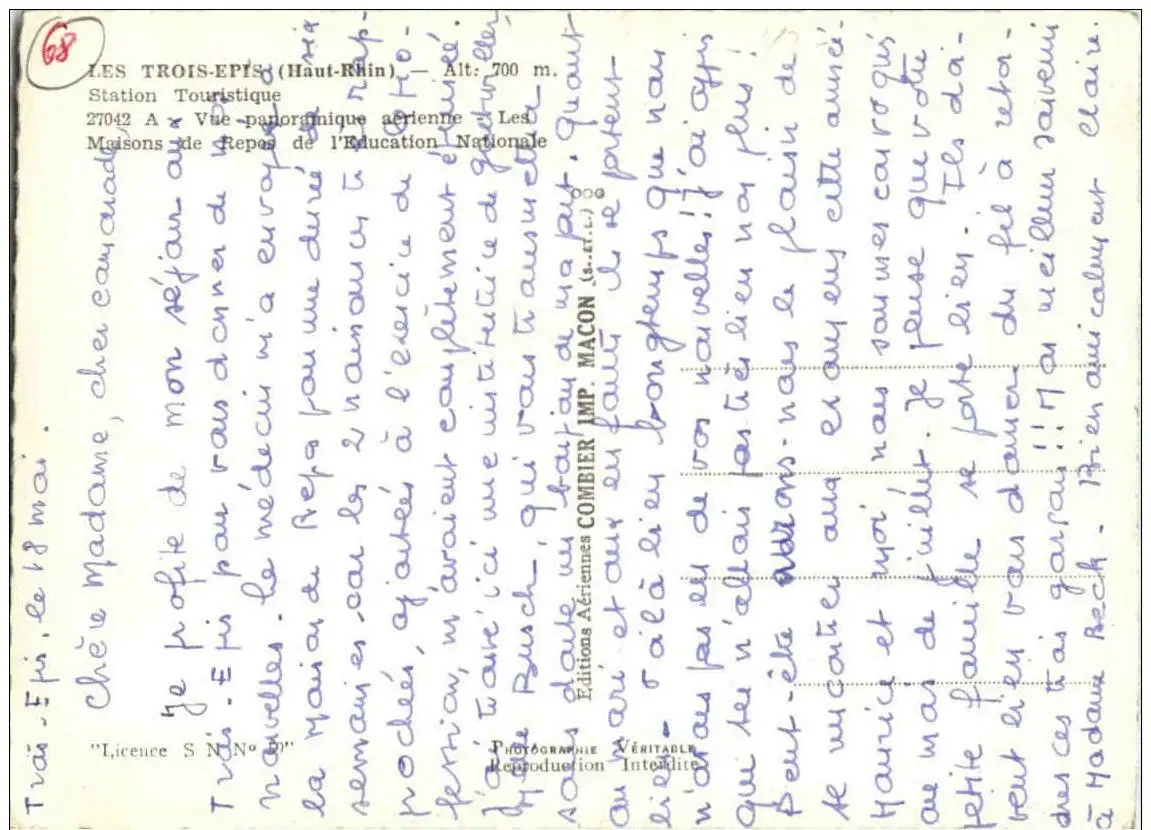 68
LES TROIS-EPIS (Haut-Rhin) — Alt: 700 m.
Station Touristique
27042 A - Vue panoramique aérienne - Les
Maisons de Repos de l'Education Nationale
"Licence S N N°
PHOTOGRAPHIE VÉRITABLE
Reproduction Interdite
Editions Aériennes COMBIER IMP. MACON (S.-ET-L.)
Trois-Epis, le 18 mai.
Chère Madame, cher camarade,
Je profite de mon séjour aux
Trois-Epis pour vous donner de mes
nouvelles. Le médecin m'a envoyée à
la Maison de Repos pour une durée de six
semaines car les 2 naissances si rap-
prochées, ajoutées à l'exercice de la pro-
fession, m'avaient complètement épuisée.
J'ai trouvé ici une institutrice de
Mme Busch, qui vous transmettra
sans doute un bonjour de ma part. Quant
au mari et aux enfants ils se portent
bien. Voilà bien longtemps que nous
n'avons pas eu de vos nouvelles!! J'ai appris
que tu n'allais pas très bien non plus!
Peut-être aurons-nous le plaisir de
se rencontrer aux examens cette année.
Maurice et moi, nous sommes convoqués
au mois de juillet. Je pense que votre
petite famille se porte bien. Ils doi-
vent bien vous donner du fil à retor-
dre ces trois garçons!!! Mon meilleur souvenir
à Madame Beck. Bien amicalement Claire.